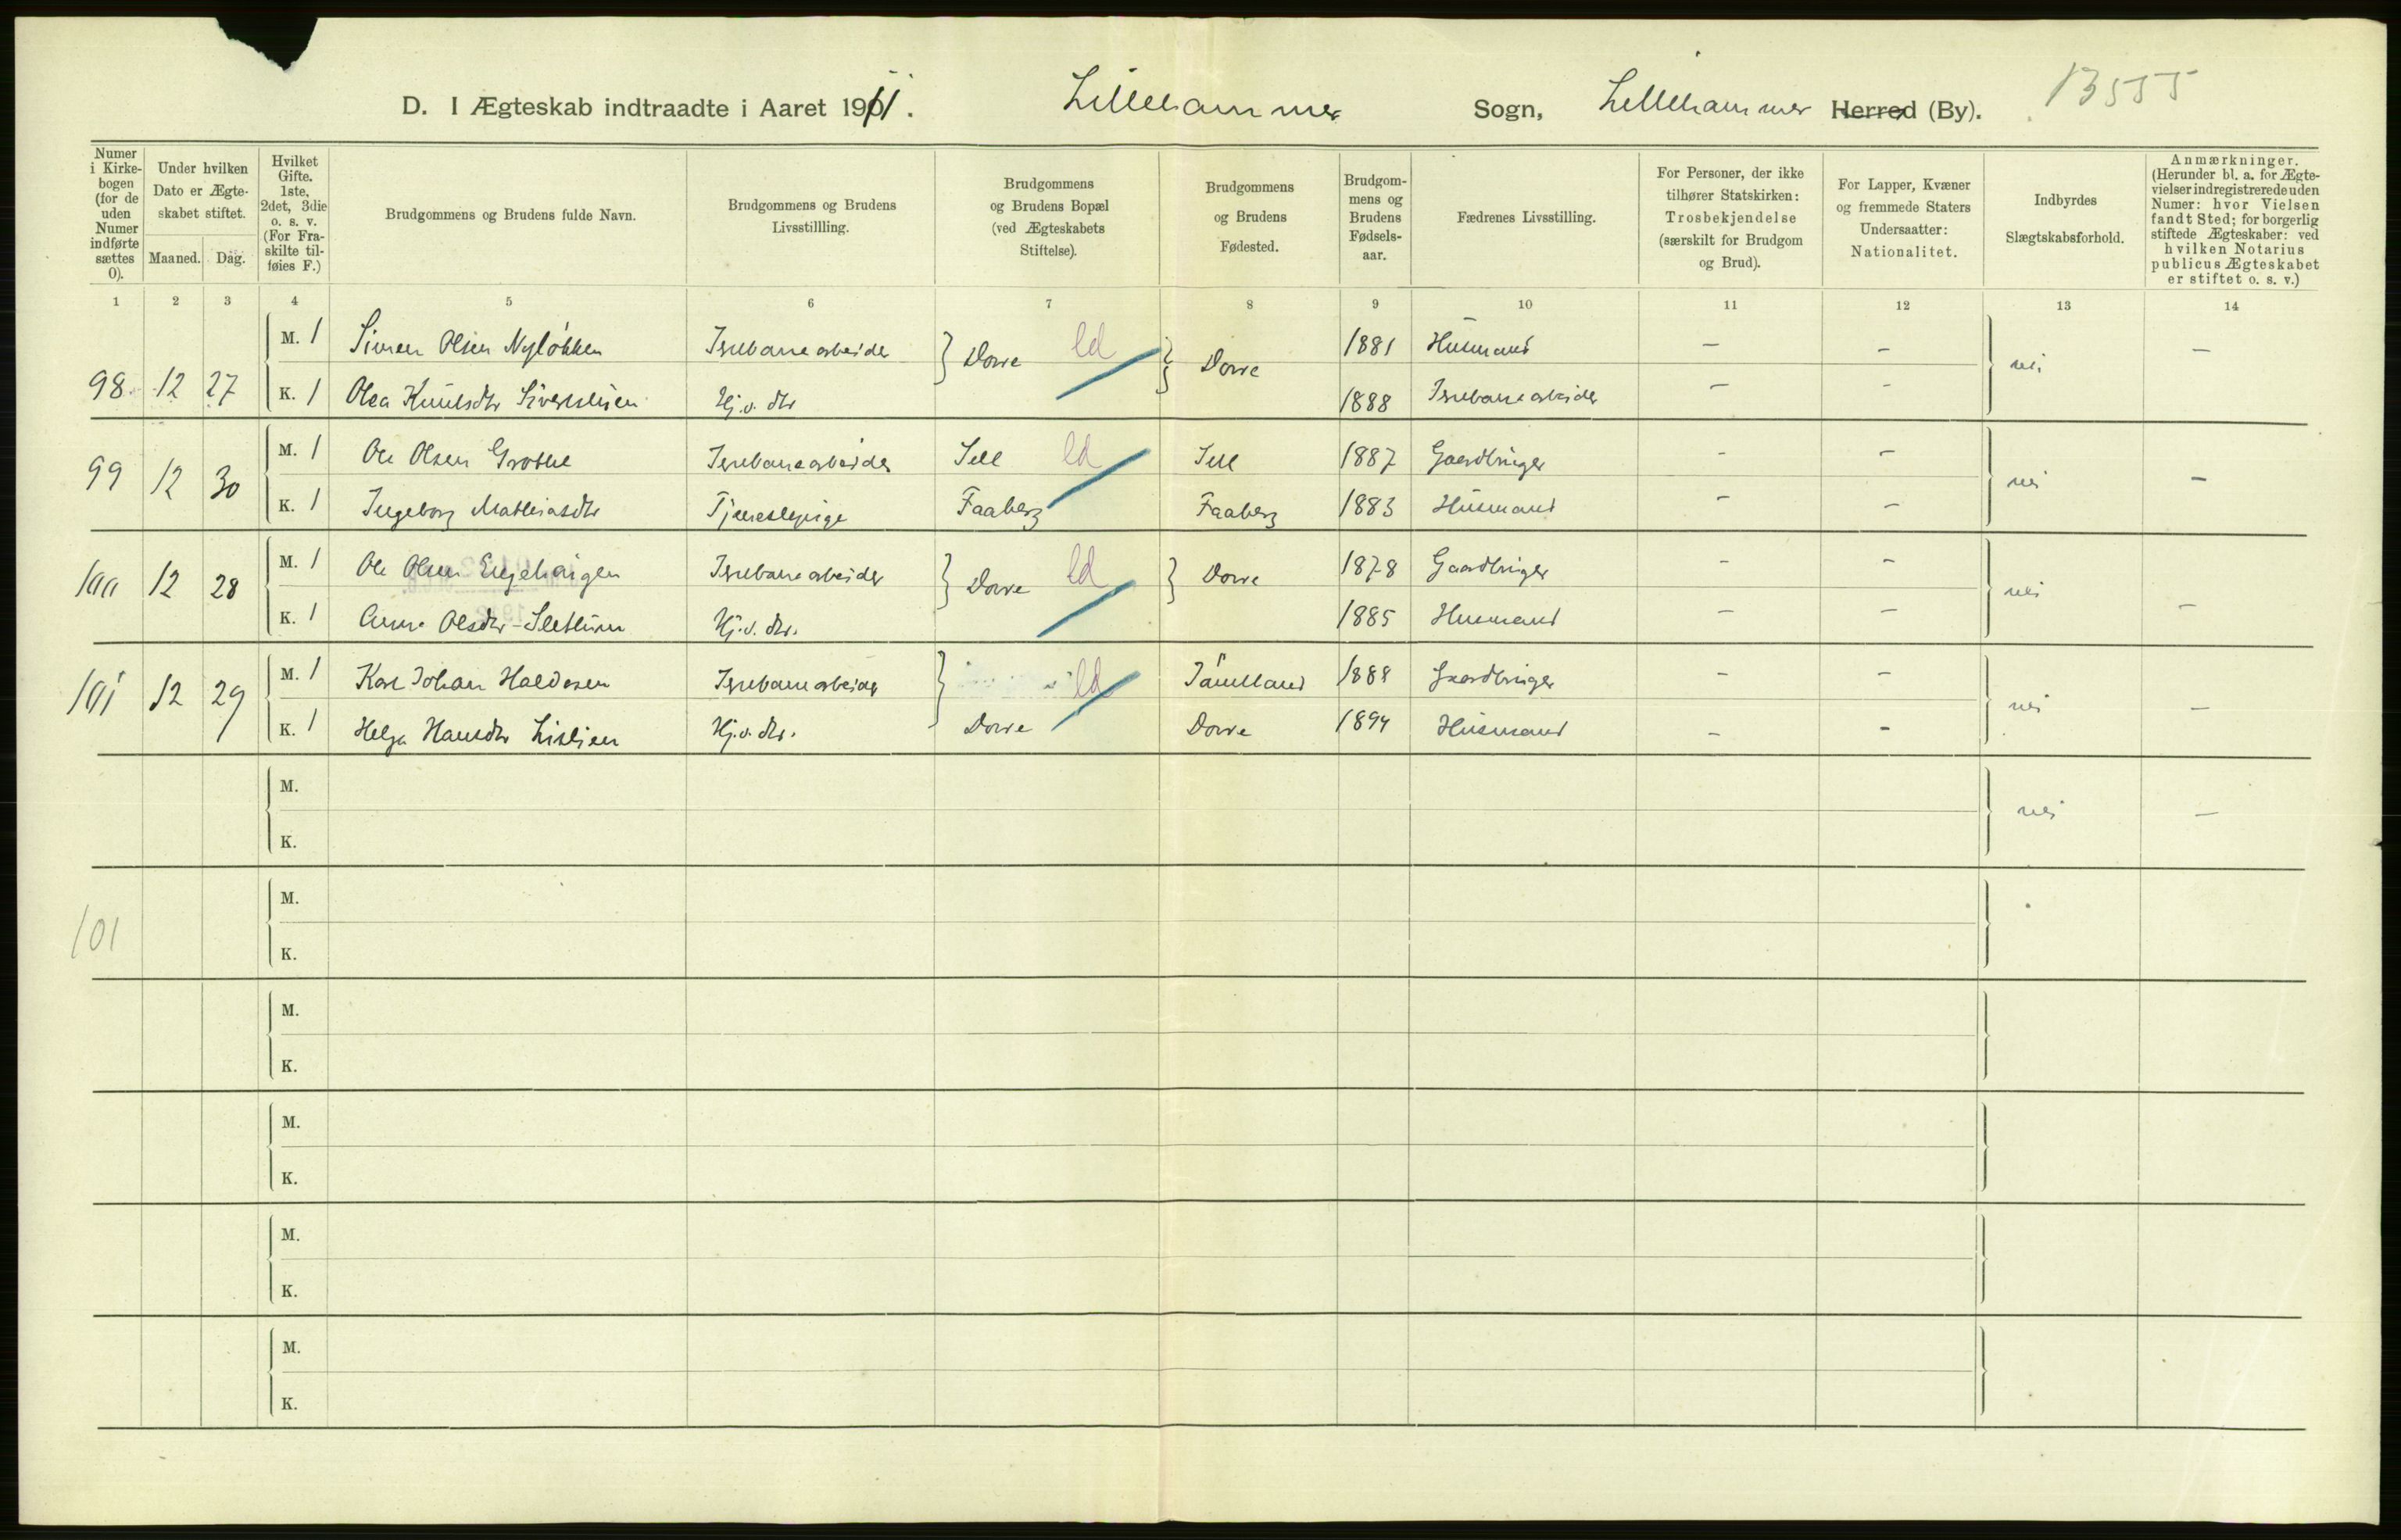 D. I Ægteskab indtraadte i Aaret 1911. Lillehammer Sogn, Lillehammer Herred (By). 13555
Numer i Kirkebogen (for de uden Numer indførte sættes 0).
Under hvilken Dato er Ægteskabet stiftet.
Maaned. Dag.
Hvilket Gifte. 1ste, 2det, 3die o. s. v. (For Fraskilte tilføies F.)
Brudgommens og Brudens fulde Navn.
Brudgommens og Brudens Livsstillling.
Brudgommens og Brudens Bopæl (ved Ægteskabets Stiftelse).
Brudgommens og Brudens Fødested.
Brudgommens og Brudens Fødselsaar.
Fædrenes Livsstilling.
For Personer, der ikke tilhører Statskirken: Trosbekjendelse (særskilt for Brudgom og Brud).
For Lapper, Kvæner og fremmede Staters Undersaatter: Nationalitet.
Indbyrdes Slægtskabsforhold.
Anmærkninger. (Herunder bl. a. for Ægtevielser indregistrerede uden Numer: hvor Vielsen fandt Sted; for borgerlig stiftede Ægteskaber: ved hvilken Notarius publicus Ægteskabet er stiftet o. s. v.)
1 2 3 4 5 6 7 8 9 10 11 12 13 14
98 12 27 M. 1 Simen Olsen Nyløkken Jernbanearbeider Dovre ld Dovre 1881 Husmand – – nei –
K. 1 Olea Knudsdtr Hj.v. dtr 1888 Jernbanearbeider – –
99 12 30 M. 1 Ole Olsen Grothe Jernbanearbeider Sell ld Sell 1887 Gaardbruger – – nei –
K. 1 Ingeborg Mathiasdtr Tjenestepige Faaberg Faaberg 1883 Husmand – –
100 12 28 M. 1 Ole Olsen Engehaugen Jernbanearbeider Dovre ld Dovre 1878 Gaardbruger – – nei –
K. 1 Anna Olsdtr Hj.v. dtr. 1885 Husmand – –
101 12 29 M. 1 Karl Johan Haldosen Jernbanearbeider ld Jämtland 1888 Gaardbruger – – nei –
K. 1 Helga Hansdtr Lislien Hj.v. dtr. Dovre Dovre 1894 Husmand – –
M. nei –
K.
M.
101
K.
M.
K.
M.
K.
M.
K.
M.
K.